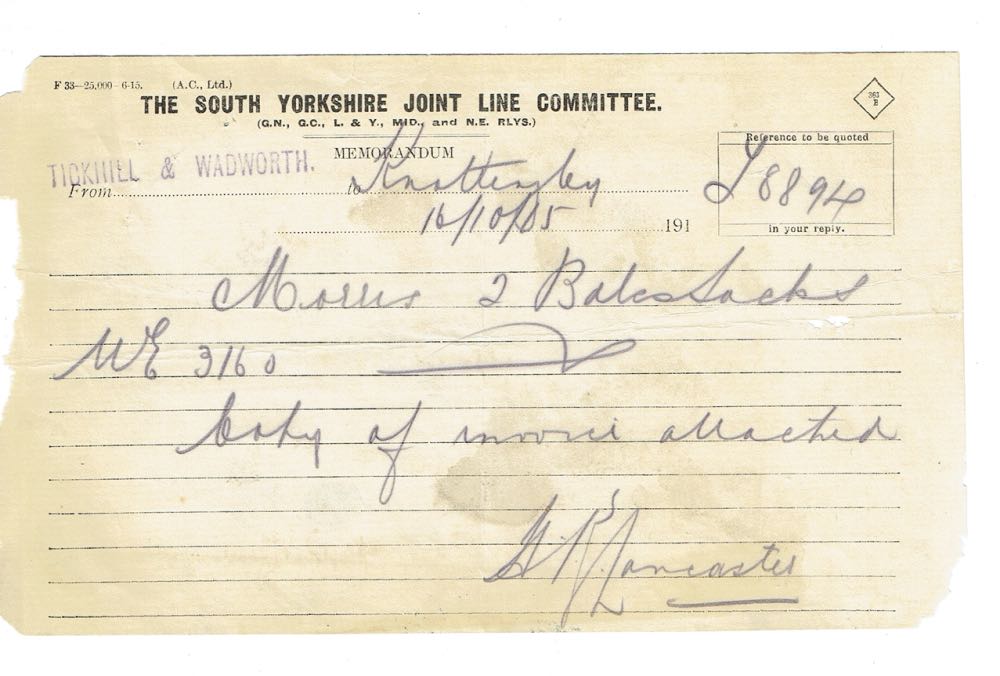 F 33—25,000—6-15. (A.C., Ltd.)
361
B
THE SOUTH YORKSHIRE JOINT LINE COMMITTEE.
(G.N., G.C., L. & Y., MID., and N.E. RLYS.)
MEMORANDUM
Reference to be quoted
8894
in your reply.
TICKHILL & WADWORTH.
From to Knottingley
16/10/05 191
Morris 2 Bales Sacks
WE 3160
Copy of invoice attached
Lancaster